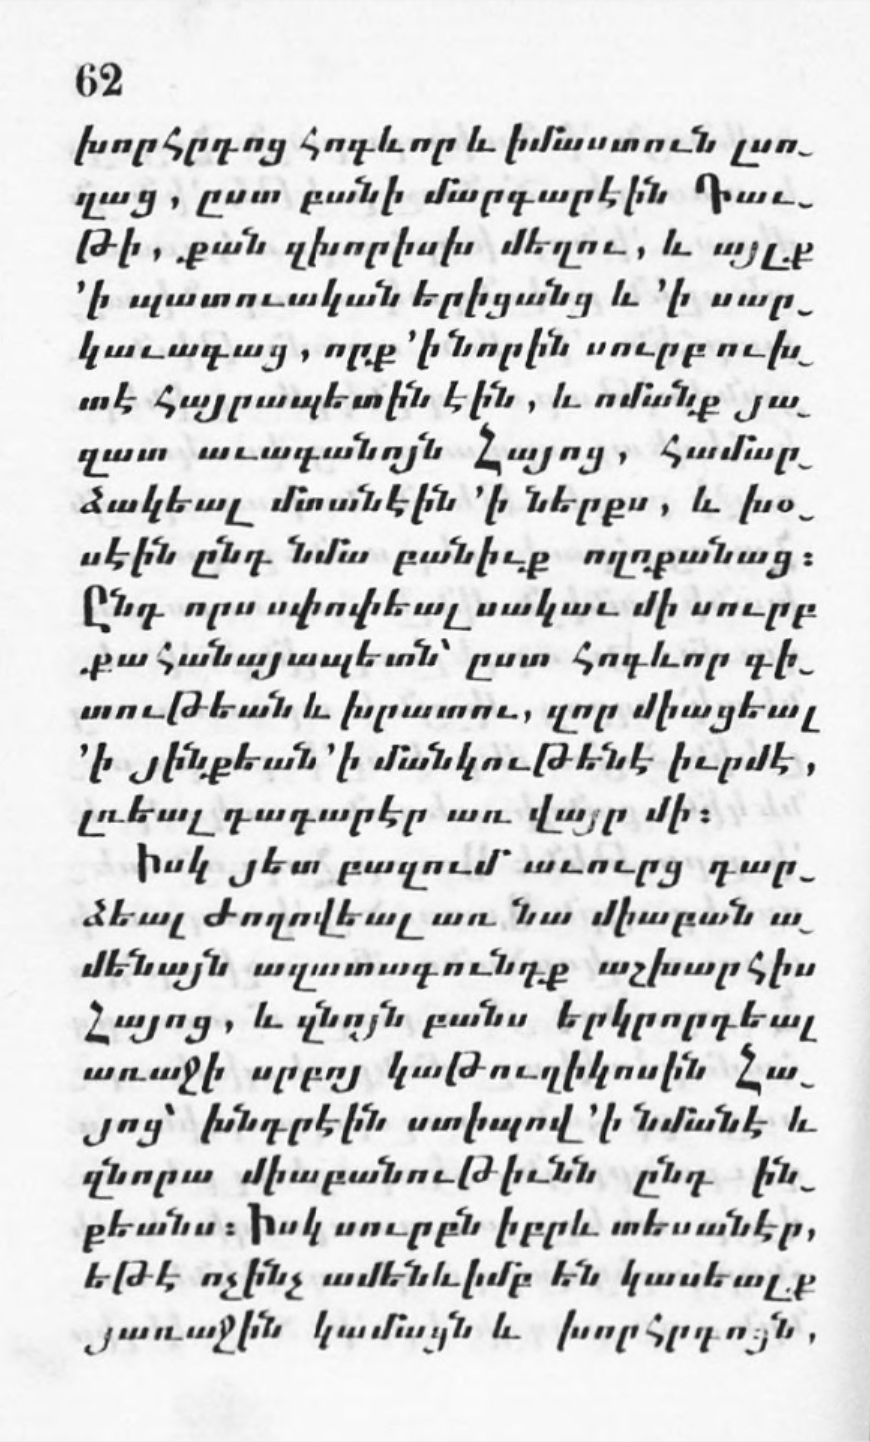 62
խորհրդոց հոգևոր և իմաստուն լսո֊
ղաց, ըստ բանի մարգարէին Դաւ֊
թի, քան զխորիսխ մեղու, և այլք
՚ի պատուական երիցանց և ՚ի սար֊
կաւագաց, որք ՚ի նորին սուրբ ուխ֊
տէ հայրապետին էին, և ոմանք յա֊
զատ աւագանոյն Հայոց, համար֊
ձակեալ մտանէին ՚ի ներքս, և խօ֊
սէին ընդ նմա բանիւք ողոքանաց։
Ընդ որս սփոփեալ սակաւ մի սուրբ
քահանայապետն՝ ըստ հոգևոր գի֊
տութեան և խրատու, զոր միացեալ
՚ի յինքեան ՚ի մանկութենէ իւրմէ,
լռեալ դադարէր առ վայր մի։
Իսկ յետ բազում աւուրց դար֊
ձեալ ժողովեալ առ նա միաբան ա֊
մենայն ազատագունդք աշխարհիս
Հայոց, և զնոյն բանս երկրորդեալ
առաջի սրբոյ կաթուղիկոսին Հա֊
յոց՝ խնդրէին ստիպով ՚ի նմանէ և
զնորա միաբանութիւնն ընդ ին֊
քեանս։ Իսկ սուրբն իբրև տեսանէր,
եթէ ոչինչ ամենևիմբ են կասեալք
յառաջին կամայն և խորհրդոյն,